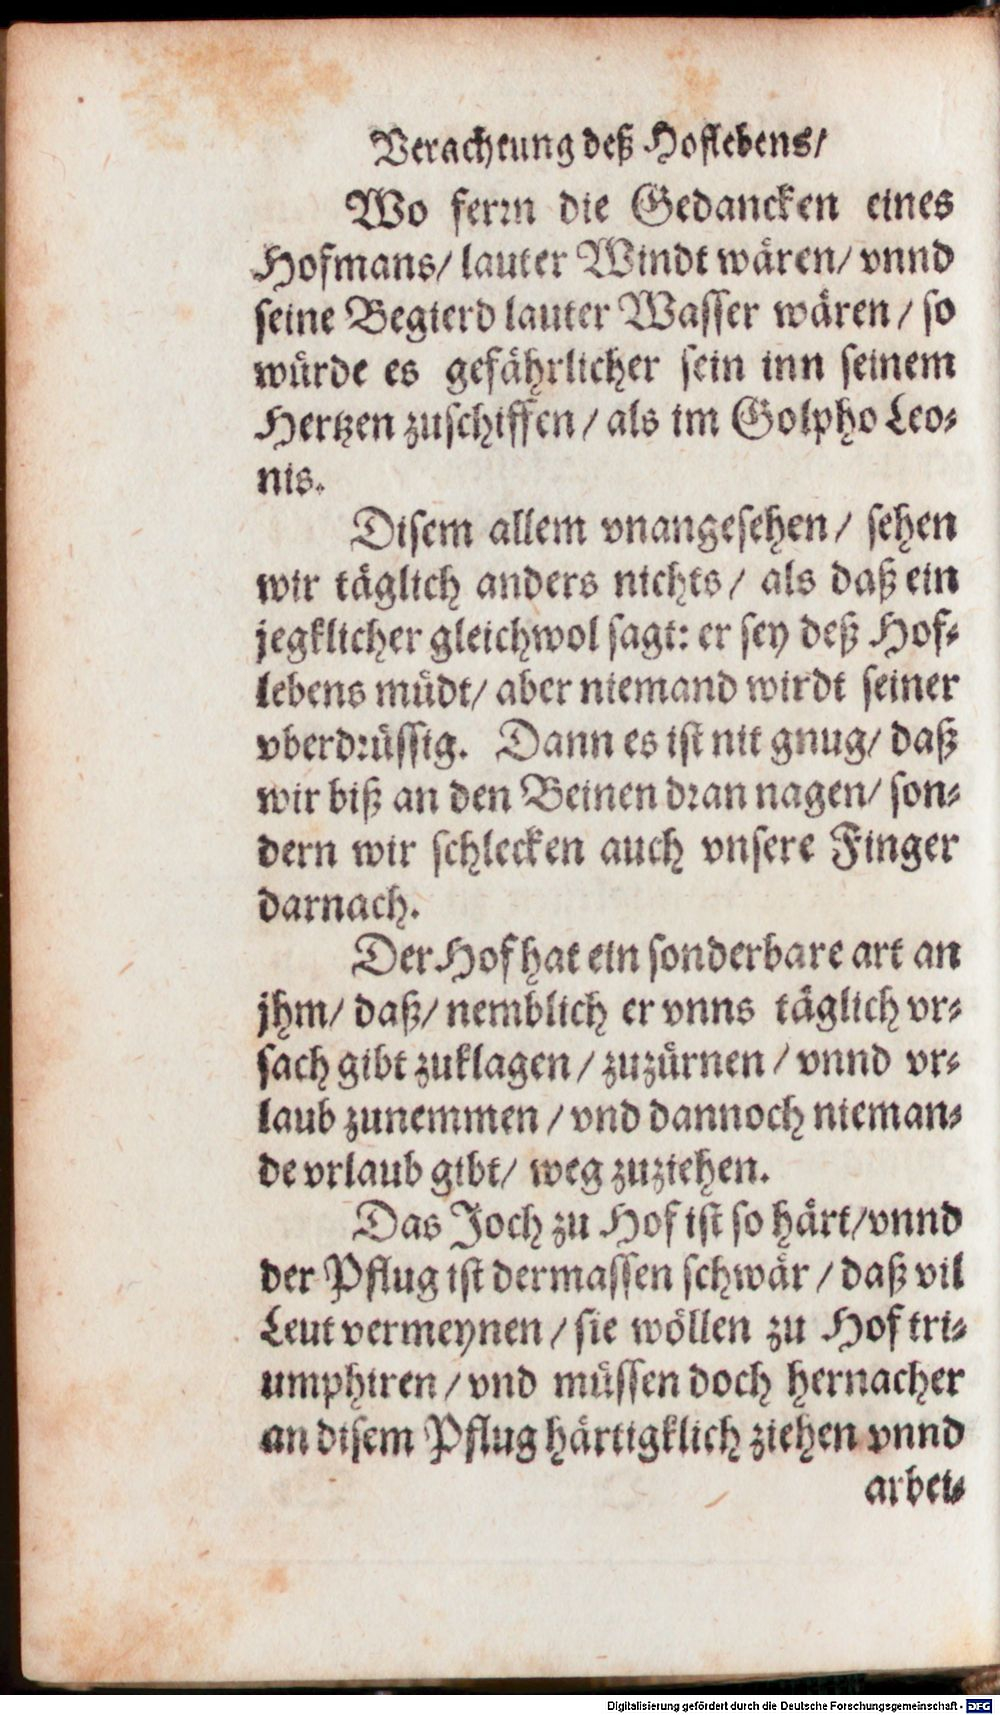 Verachtung deß Hoflebens/
Wo ferrn die Gedancken eines
Hofmans/ lauter Windt wären/ vnnd
seine Begierd lauter Wasser wären / so
würde es gefährlicher sein inn seinem
Hertzen zuschiffen / als im Golpho Leo-
nis.
Disem allem vnangesehen/ sehen
wir täglich anders nichts/ als daß ein
jegklicher gleichwol sagt: er sey deß Hof-
lebens müdt/ aber niemand wirdt seiner
vberdrüssig. Dann es ist nit gnug/ daß
wir biß an den Beinen dran nagen/ son-
dern wir schlecken auch vnsere Finger
darnach.
Der Hof hat ein sonderbare art an
jhm/ daß/ nemblich er vnns täglich vr-
sach gibt zuklagen / zuzürnen / vnnd vr-
laub zunemmen / vnd dannoch nieman-
de vrlaub gibt/ weg zuziehen.
Das Joch zu Hof ist so härt/vnnd
der Pflug ist dermassen schwär / daß vil
Leut vermeynen / sie wöllen zu Hof tri-
umphiren / vnd müssen doch hernacher
an disem Pflug härtigklich ziehen vnnd
arbei-
Digitalisierung gefördert durch die Deutsche Forschungsgemeinschaft - DFG